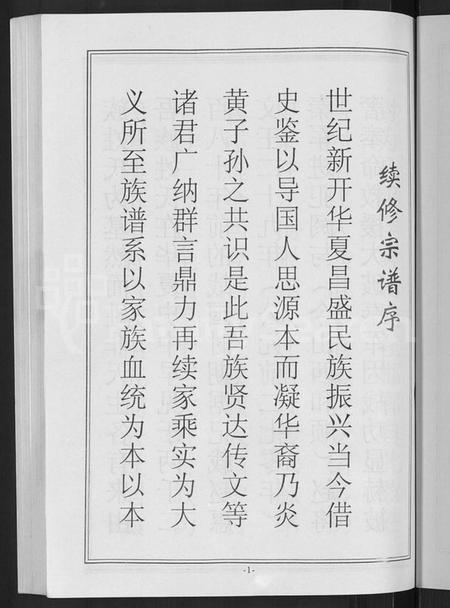 续修宗谱序
世纪新开华夏昌盛民族振兴当今借
史鉴以导国人思源本而凝华裔乃炎
黄子孙之共识是此吾族贤达传文等
诸君广纳群言鼎力再续家乘实为大
义所至族谱系以家族血统为本以本
-1-